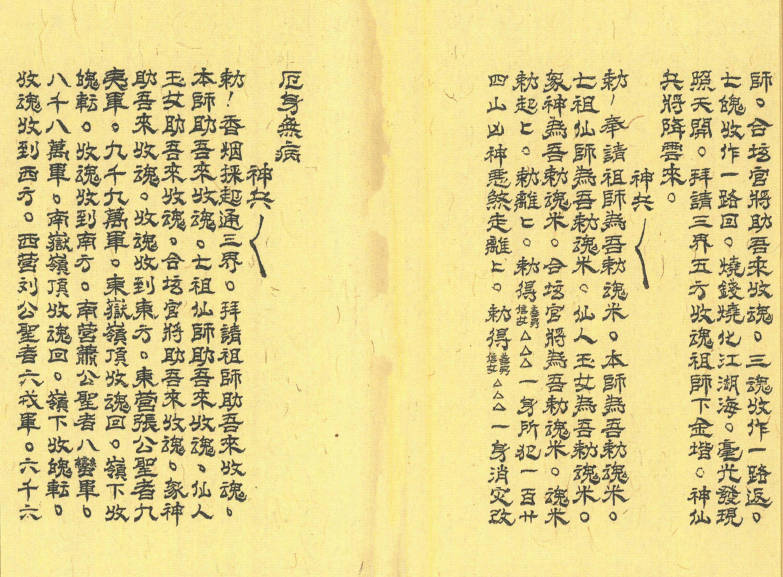 師。合坛官將助吾來收魂。三魂收作一路返。
七魄收作一路回。燒錢燒化江湖海。毫光發現
照天開。拜請三界五方收魂祖師下金堦。神仙
兵將降雲來。
神兵
勅!奉請祖師為吾勅魂米。本師為吾勅魂米。
七祖仙師為吾勅魂米。仙人玉女為吾勅魂米。
眾神為吾勅魂米。合坛官將為吾勅魂米。魂米
勅起〻。勅離〻。勅得善男信女△△△一身所犯一百廿
四山凶神悪煞走離〻。勅得善男信女△△△一身消灾改
厄身無病
神兵
勅!香烟採起通三界。拜請祖師助吾來收魂。
本師助吾來收魂。七祖仙師助吾來收魂。仙人
玉女助吾來收魂。合坛官將助吾來收魂。眾神
助吾來收魂。收魂收到東方。東营張公聖者九
夷軍。九千九萬軍。東嶽嶺頂收魂回。嶺下收
魄転。收魂收到南方。南营蕭公聖者八蠻軍。
八千八萬軍。南嶽嶺頂收魂回。嶺下收魄転。
收魂收到西方。西营刘公聖者六戎軍。六千六